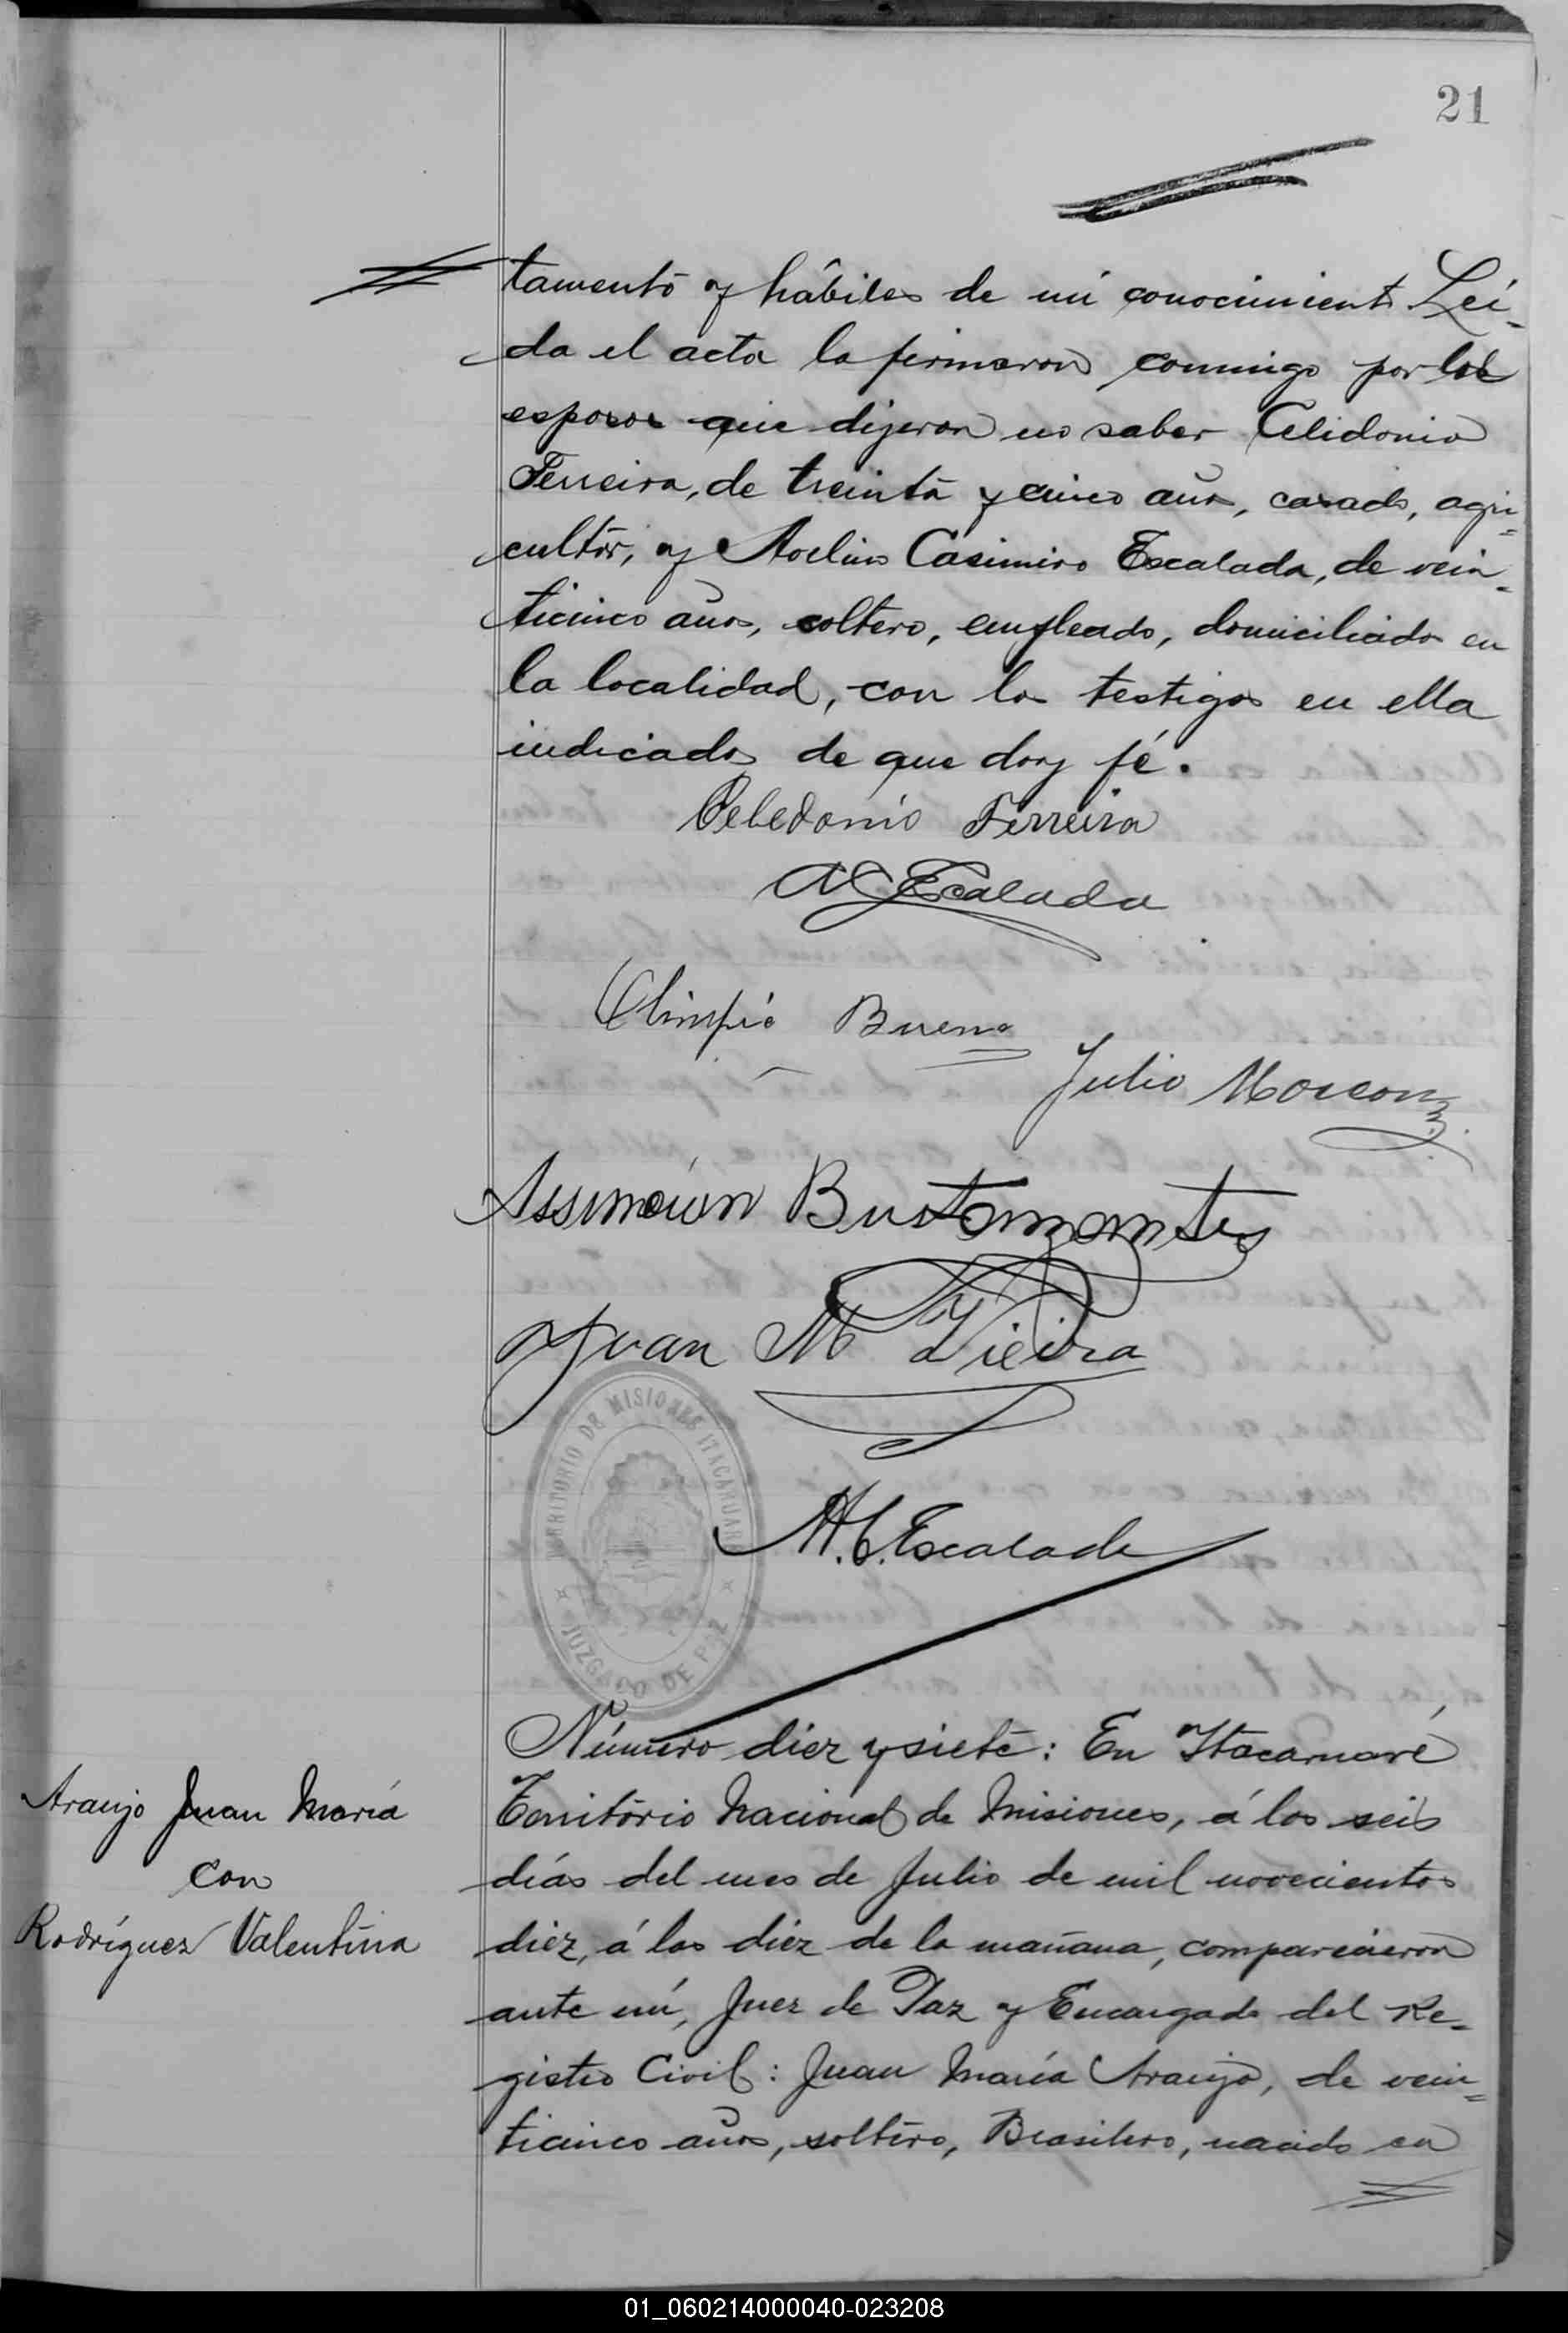 21
tamento y hábiles de mi conocimiento Leí-
da el acta la firmaron conmigo por los
esposos que dijeron no saber Celidonio
Ferreira, de treinta y cinco años, casado, agri-
cultor, y Avelino Casimiro Escalada, de vein-
ticinco años, soltero, empleado, domiciliados en
la localidad, con los testigos en ella
indicados de que doy fé.
Celedonio Ferreira
AC Escalada
Olimpio Bueno
Julio
Assuncion Bustamante
Juan M Vieira
TERRITORIO DE MISIONES ITACARUARE
JUZGADO DE PAZ
A.C. Escalada
Número diez y siete: En Itacaruaré
Araujo Juan María
con
Rodríguez Valentina
Territorio Nacional de Misiones, á los seis
días del mes de Julio de mil novecientos
diez, á las diez de la mañana, comparecieron
ante mí, Juez de Paz y Encargado del Re-
gistro Civil: Juan María Araujo, de vein-
ticinco años, soltero, Brasilero, nacido en
01_060214000040-023208